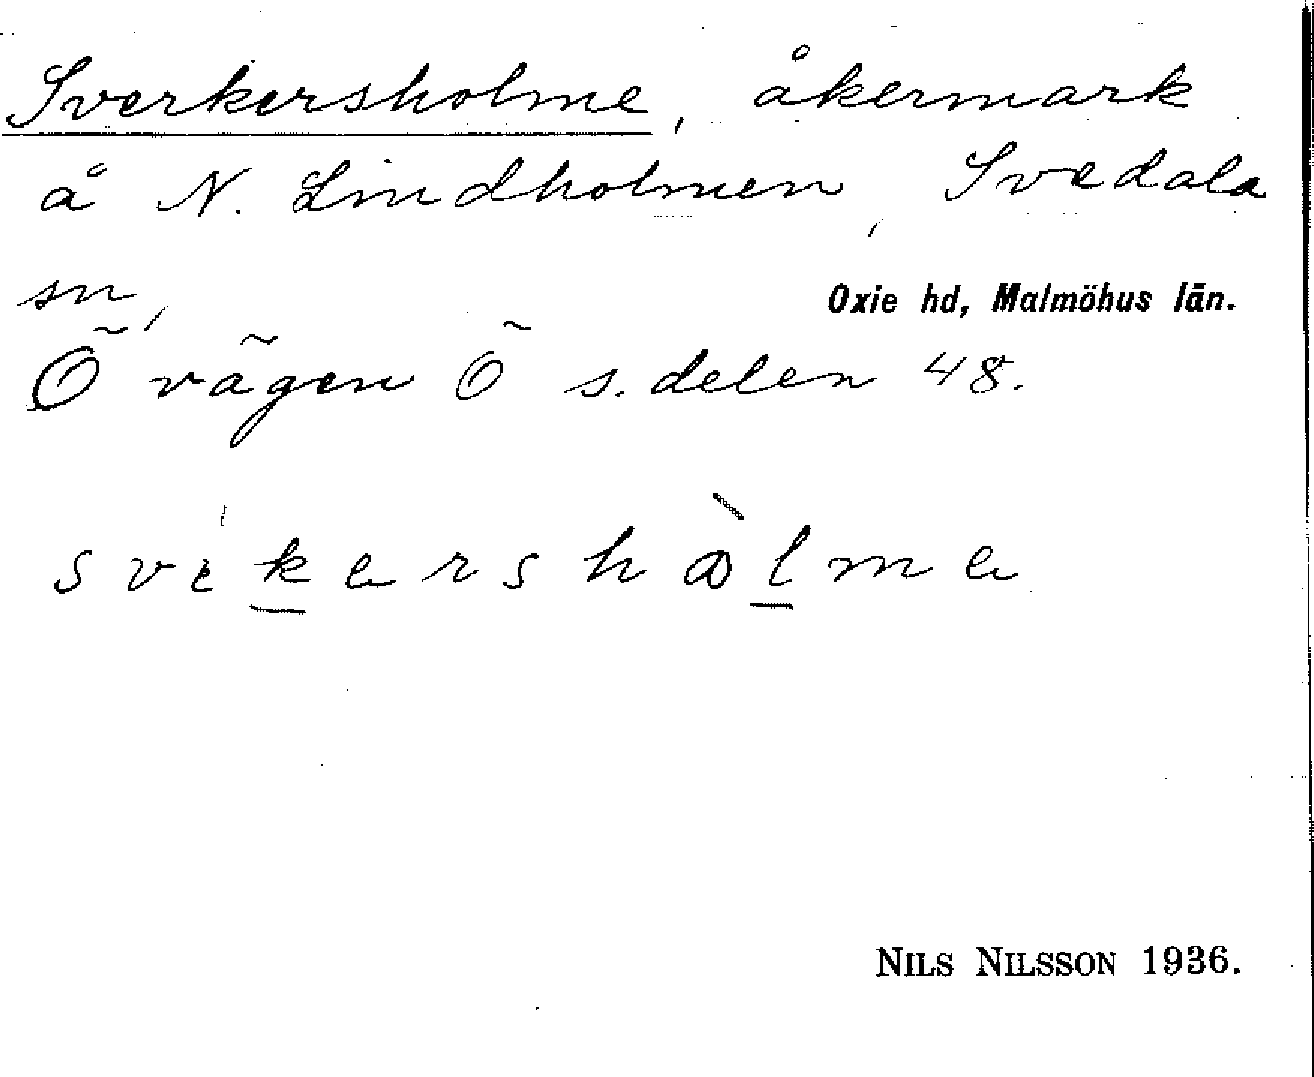 Sverkersholme, åkermark
å N. Lindholmen, Svedala
sn, Oxie hd, Malmöhus län.
Ö vägen Ö s. delen 48.
svɛ́kershòlme
NILS NILSSON 1936.